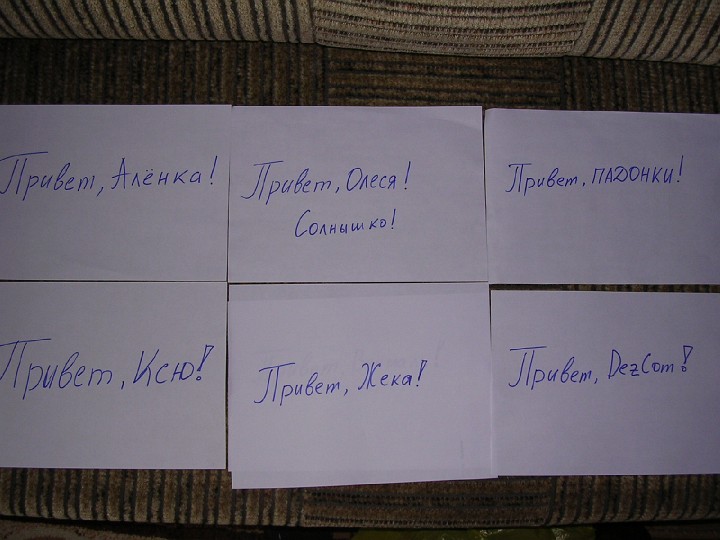 Привет, Алёнка!
Привет, Олеся!
Солнышко!
Привет, ПАДОНКИ!
Привет, Ксю!
Привет, Жека!
Привет, DezCom!